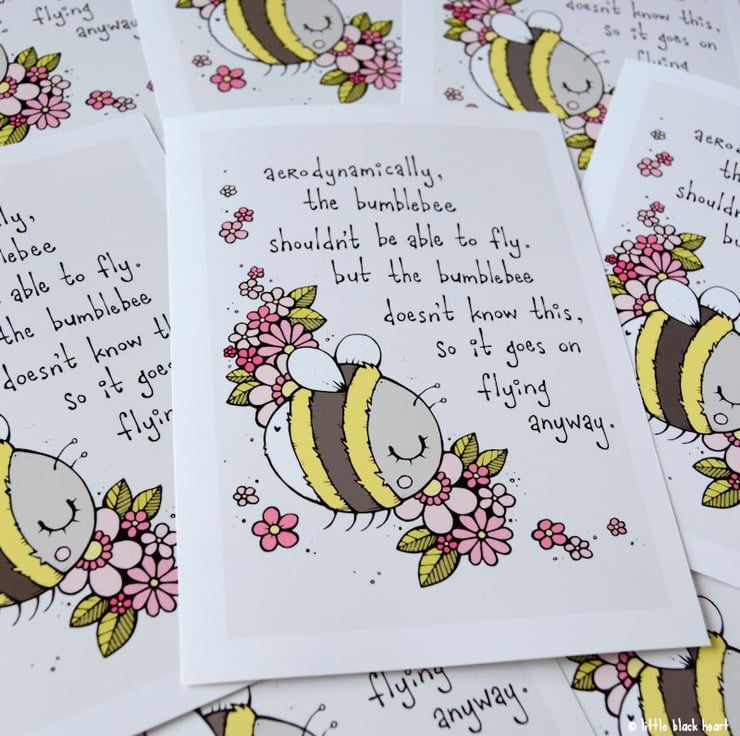 flying
anyway
doesn't know this,
so it goes on
flying
aerodynamically,
the bumblebee
shouldn't be able to fly.
but the bumblebee
doesn't know this,
so it goes on
flying
anyway.
able to fly.
the bumblebee
doesn't know
so it goes
flying
anyway.
© little black heart